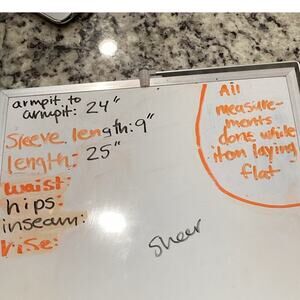 armpit to
armpit: 24"
Sleeve length: 9"
length: 25"
waist:
hips:
inseam:
rise:
All
measure-
ments
done while
item laying
flat
sheer